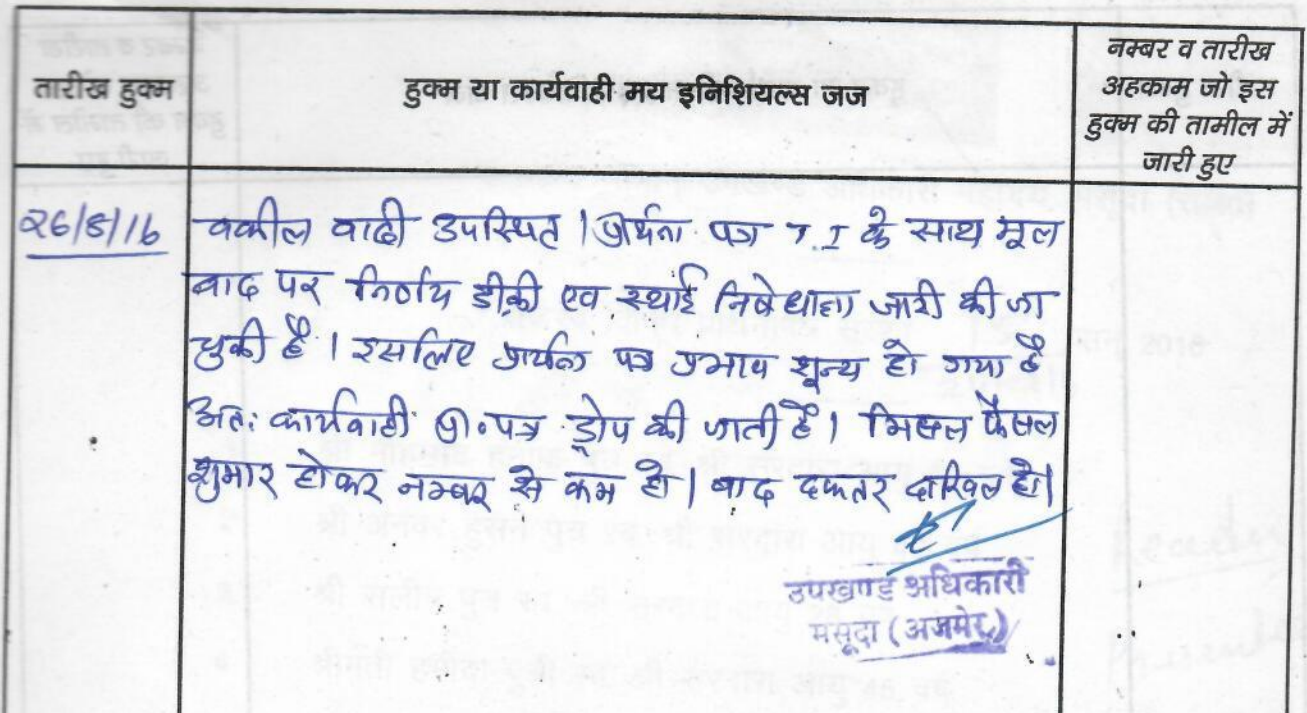 तारीख हुक्म
हुक्म या कार्यवाही मय इनिशियल्स जज
नम्बर व तारीख
अहकाम जो इस
हुक्म की तामील में
जारी हुए
26/8/16
वकील वादी उपस्थित । प्रार्थना पत्र T.I के साथ मूल
वाद पर निर्णय डीक्री एव स्थाई निषेधाज्ञा जारी की जा
चुकी है । इसलिए प्रार्थना पत्र प्रभाव शून्य हो गया है
अतः कार्यवाही प्रा॰पत्र ड्रोप की जाती है । मिसल फैसल
शुमार होकर नम्बर से कम हो । बाद दफ्तर दाखिल हो।
उपखण्ड अधिकारी
मसूदा (अजमेर)